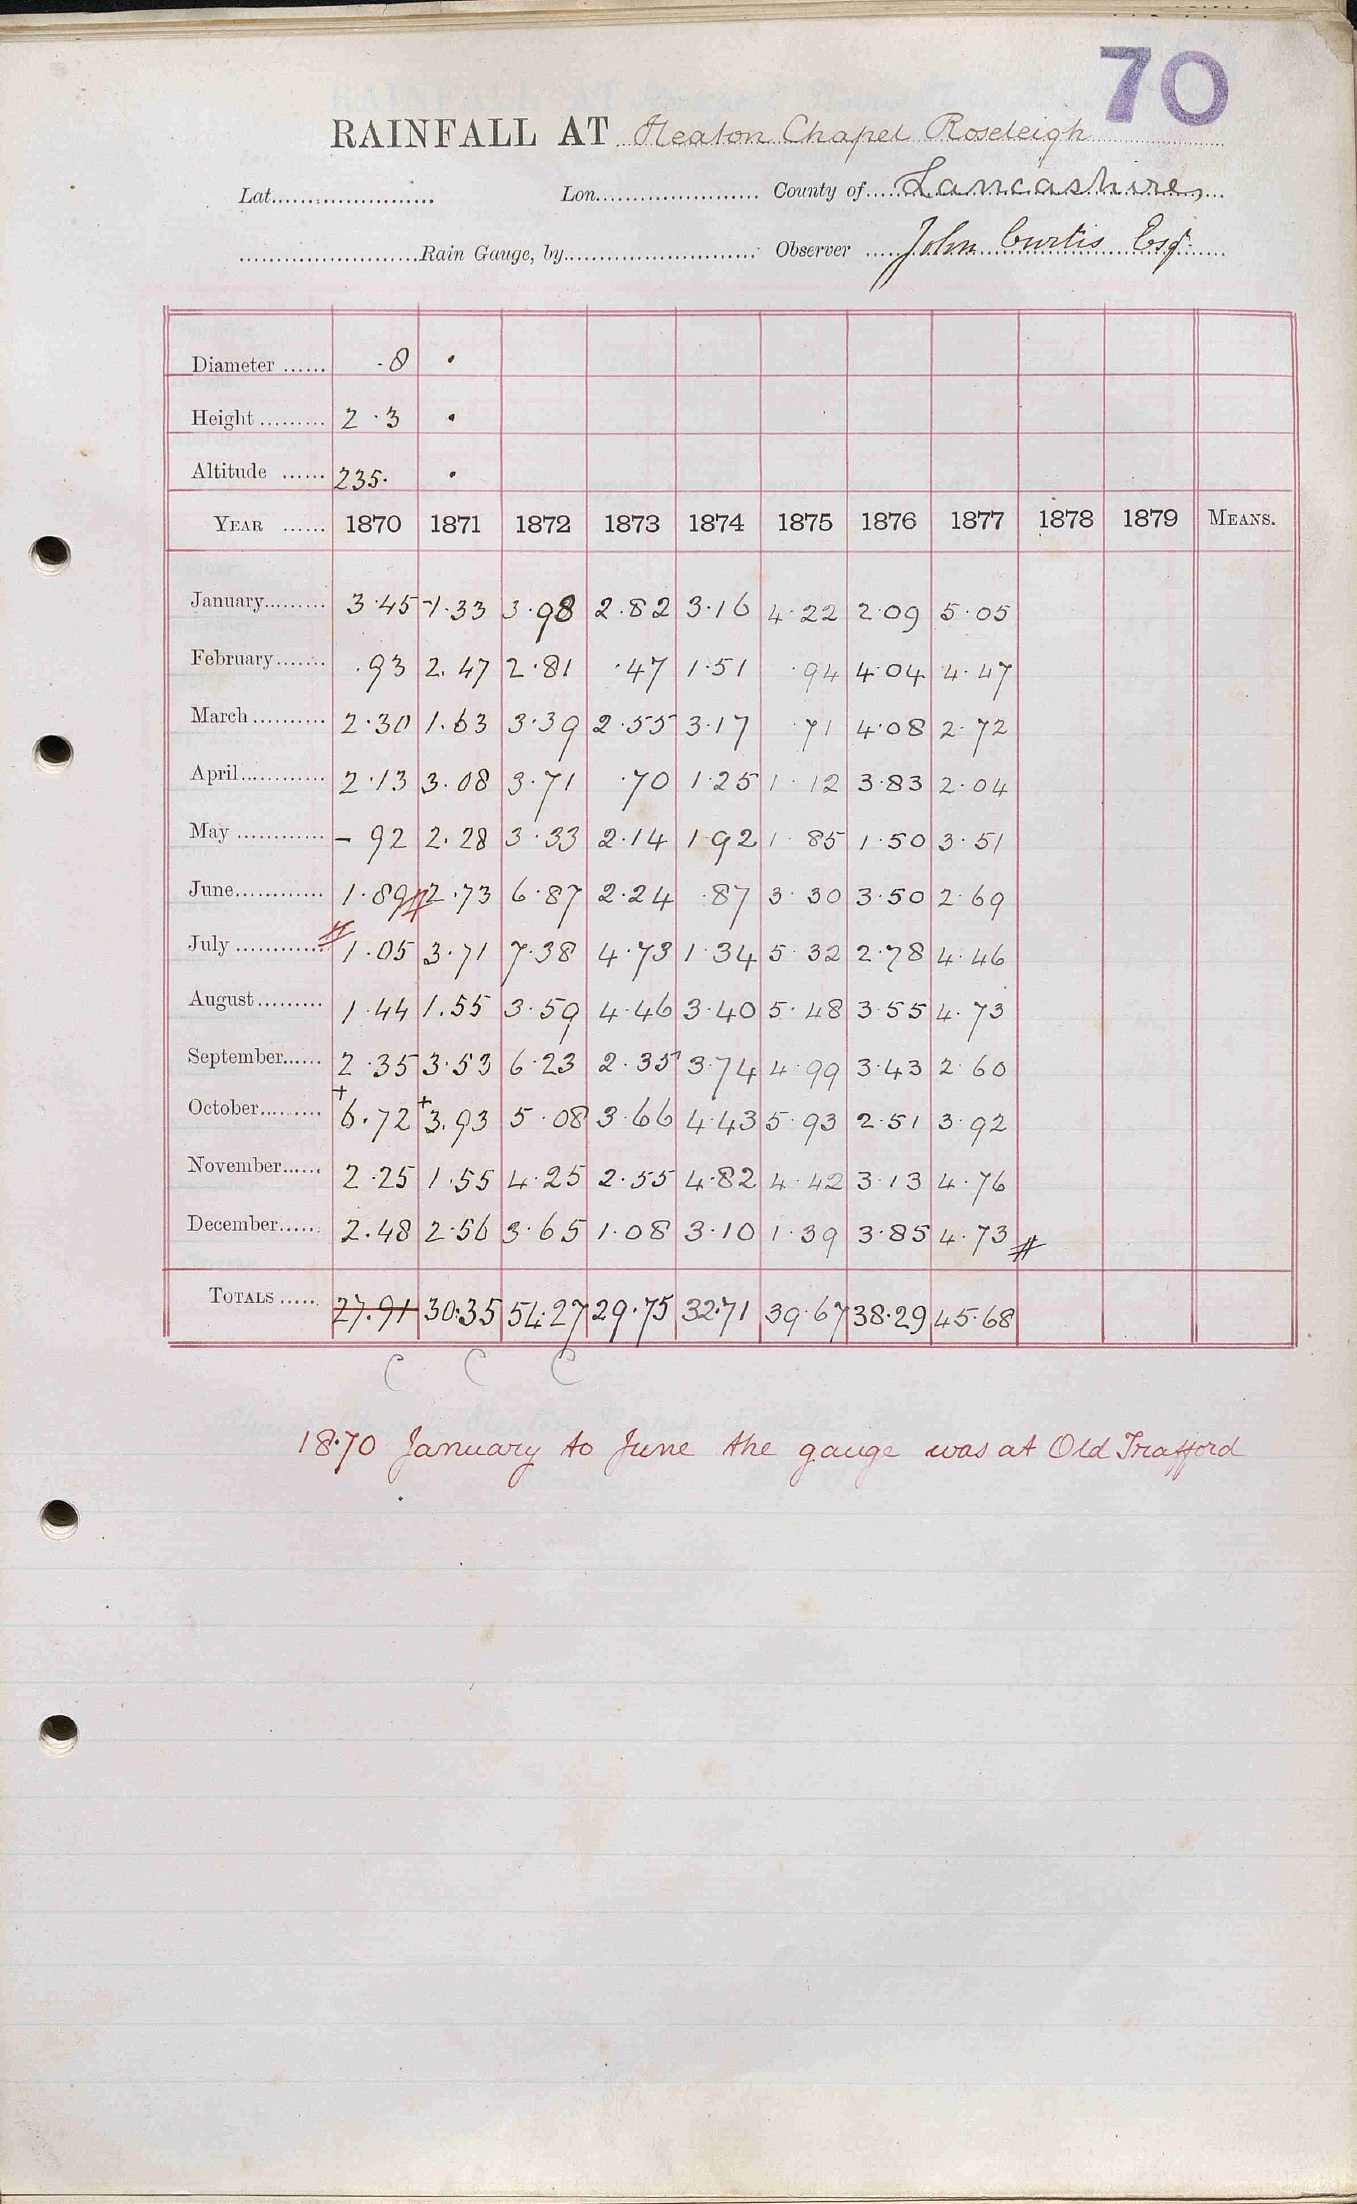 70
RAINFALL AT Heaton Chapel Roseleigh
Lat. Lon. County of Lancashire,
Rain Gauge, by Observer John Curtis Esq.
Diameter ...... ·8 ·
Height ......... 2·3 ·
Altitude ...... 235· ·
YEAR ...... 1870 1871 1872 1873 1874 1875 1876 1877 1878 1879 MEANS.
January......... 3·45 1·33 3·98 2·82 3·16 4·22 2·09 5·05
February....... ·93 2.47 2·81 ·47 1·51 ·94 4·04 4·47
March .......... 2·30 1.63 3·39 2·55 3·17 ·71 4·08 2·72
April............ 2·13 3.08 3·71 ·70 1·25 1·12 3·83 2·04
May ............ – 92 2.28 3·33 2·14 1·92 1·85 1·50 3·51
June............ 1·89 # 2·73 6·87 2·24 ·87 3·30 3·50 2·69
July ............ # 1·05 3·71 7·38 4·73 1·34 5·32 2·78 4·46
August ......... 1·44 1.55 3·59 4·46 3·40 5·48 3·55 4·73
September...... 2·35 3·53 6·23 2·35 3·74 4·99 3·43 2·60
October......... +6.72 +3.93 5·08 3·66 4·43 5·93 2·51 3·92
November...... 2·25 1·55 4·25 2·55 4·82 4·42 3·13 4·76
December...... 2.48 2·56 3·65 1·08 3·10 1·39 3·85 4·73 #
TOTALS ..... 27.91 30·35 54·27 29·75 32·71 39·67 38·29 45·68
C C C
18·70 January to June the gauge was at Old Trafford